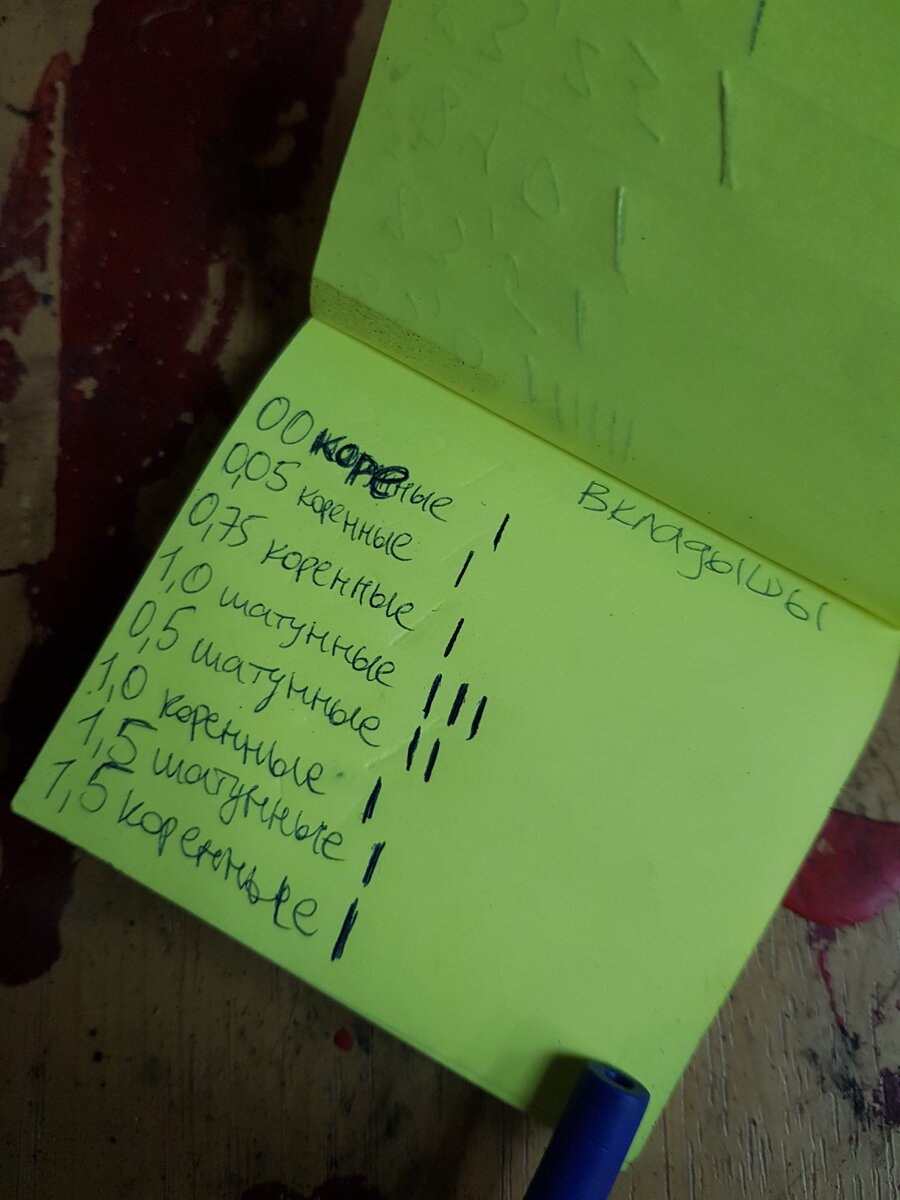 Вкладыши
00 коренные |
0,05 коренные |
0,75 коренные |
1,0 шатунные |||
0,5 шатунные ||
1,0 коренные |
1,5 шатунные |
1,5 коренные |